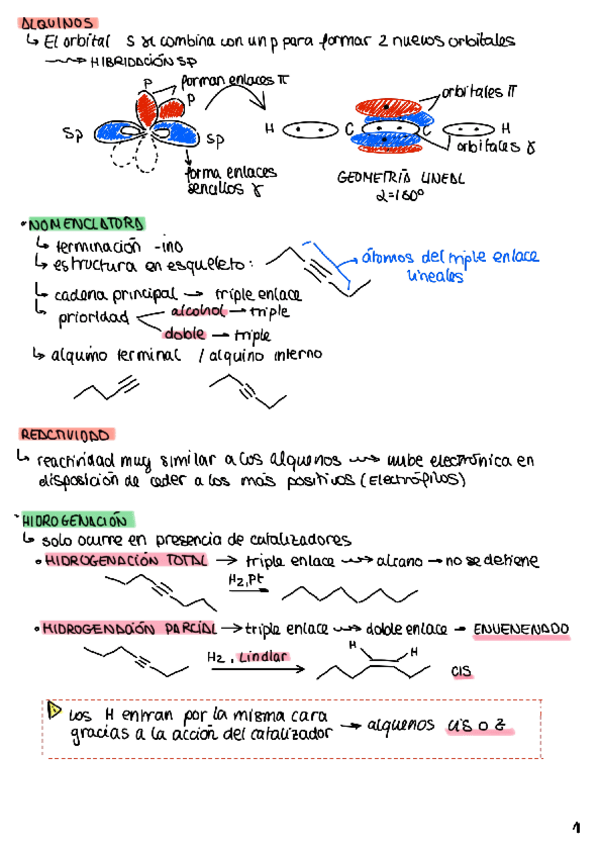 ALQUINOS
↳ El orbital s se combina con un p para formar 2 nuevos orbitales
HIBRIDACIÓN SP
P forman enlaces π
P
Sp Sp
forma enlaces
sencillos γ
orbitales π
H C C H
orbitales γ
GEOMETRÍA LINEAL
α=180°
• NOMENCLATURA
↳ terminación -ino
↳ estructura en esqueleto:
átomos del triple enlace
lineales
↳ cadena principal → triple enlace
↳ prioridad
alcohol → triple
doble → triple
↳ alquino terminal / alquino interno
REACTIVIDAD
↳ reactividad muy similar a los alquenos → nube electrónica en
disposición de ceder a los más positivos (Electrófilos)
• HIDROGENACIÓN
↳ solo ocurre en presencia de catalizadores
• HIDROGENACIÓN TOTAL → triple enlace → alcano → no se detiene
H2, Pt
• HIDROGENACIÓN PARCIAL → triple enlace → doble enlace - ENVENENADO
H2, Lindlar
H H
CIS
Los H entran por la misma cara
gracias a la acción del catalizador → alquenos cis o z
1